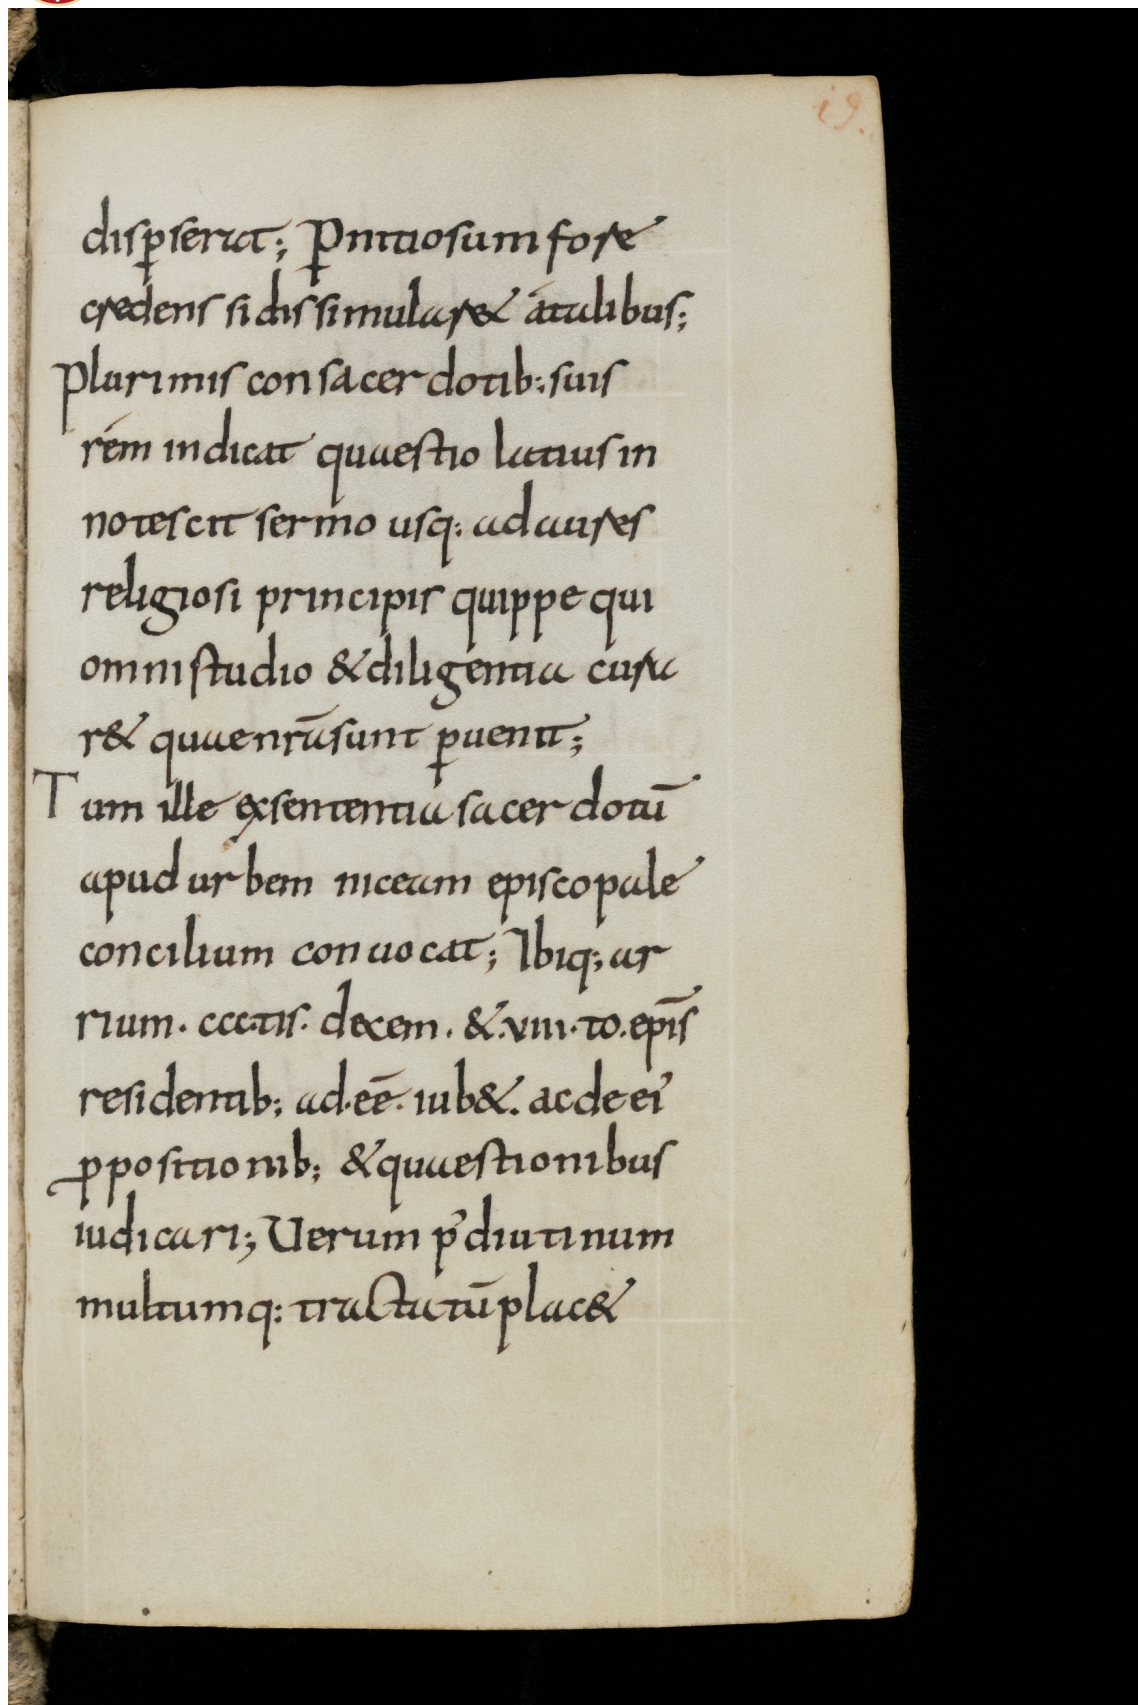 i9.
disꝑserat; Ꝑnitiosum fore
credens si dissimular& atalibus;
Plurimis consacerdotib: suis
rem indicat quaestio latius in
notescit sermo usq: ad aures
religiosi principis quippe qui
omni studio & diligentia cura
r& quae nr̄a sunt ꝑuenit;
Tum ille exsententia sacerdotū
apud urbem niceam episcopale
concilium conuocat; Ibiq; ar
rium. ccc.tis. decem. &.viii.to. epīs
residentib; ad.eē. iub&. ac de ei'
ꝓpositionib; & quaestionibus
iudicari; Uerum p' diutinum
multumq: tractatū plac&